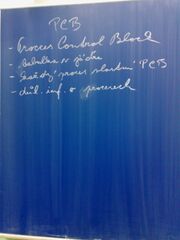 PCB
- Process Control Block
- tabulka v jádře
- každý proces vlastní PCB
- důl. inf. o procesech